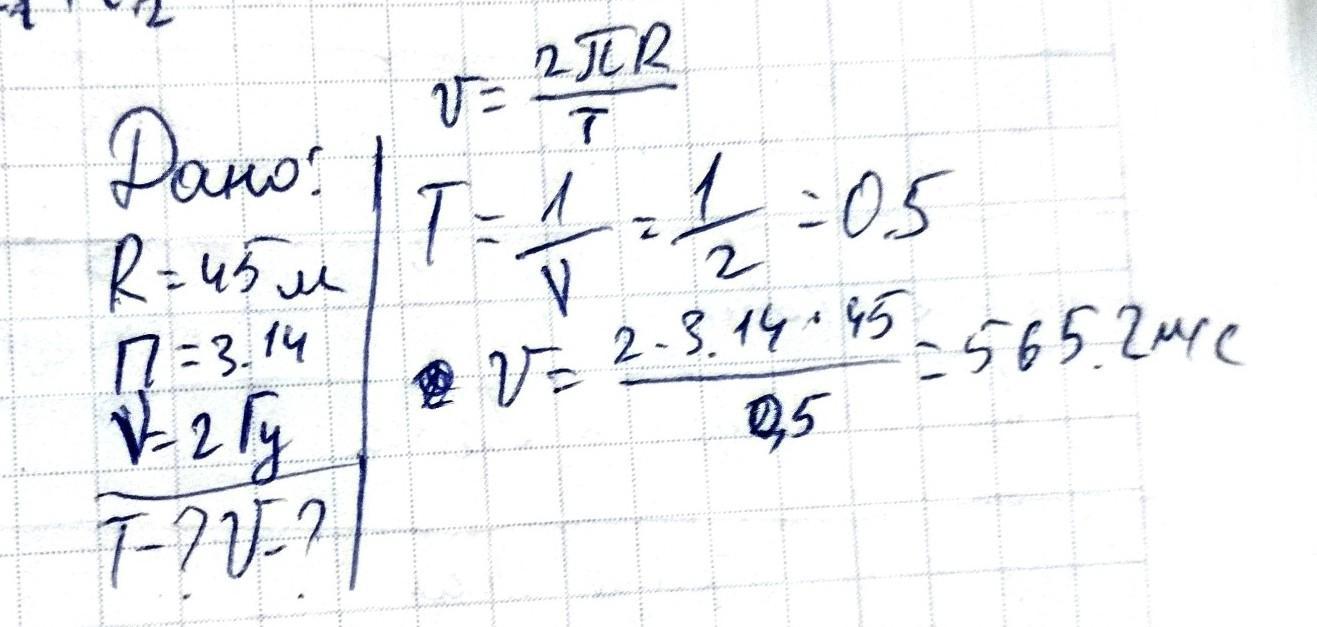 Дано:
R = 45 м
П = 3.14
V = 2 Гц
T - ? υ - ?
υ = 2πR / T
T = 1 / V = 1 / 2 = 0.5
υ = 2 · 3.14 · 45 / 0,5 = 565.2 м/с